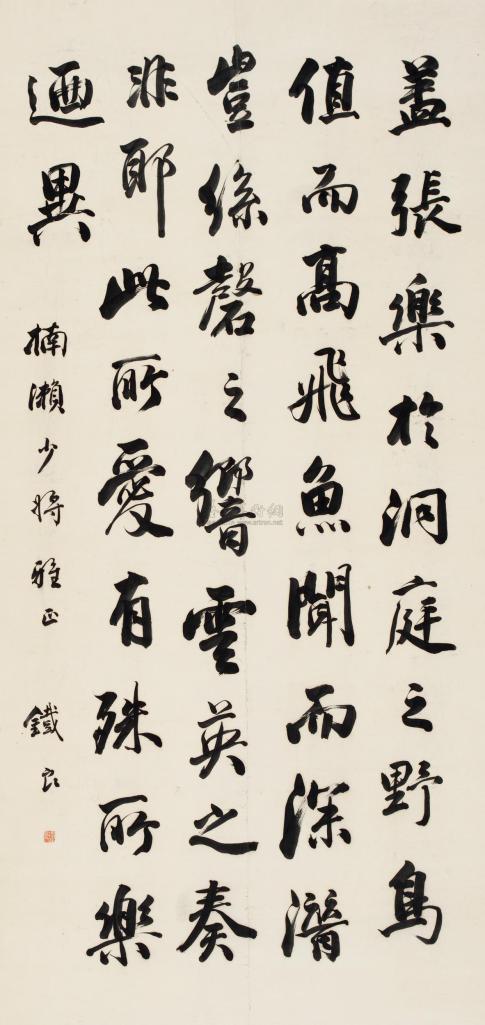 蓋張樂於洞庭之野鳥
值而高飛魚聞而深潛
豈絲磬之響雲英之奏
非耶此所愛有殊所樂
迺異
楠瀬少將雅正
鐵良